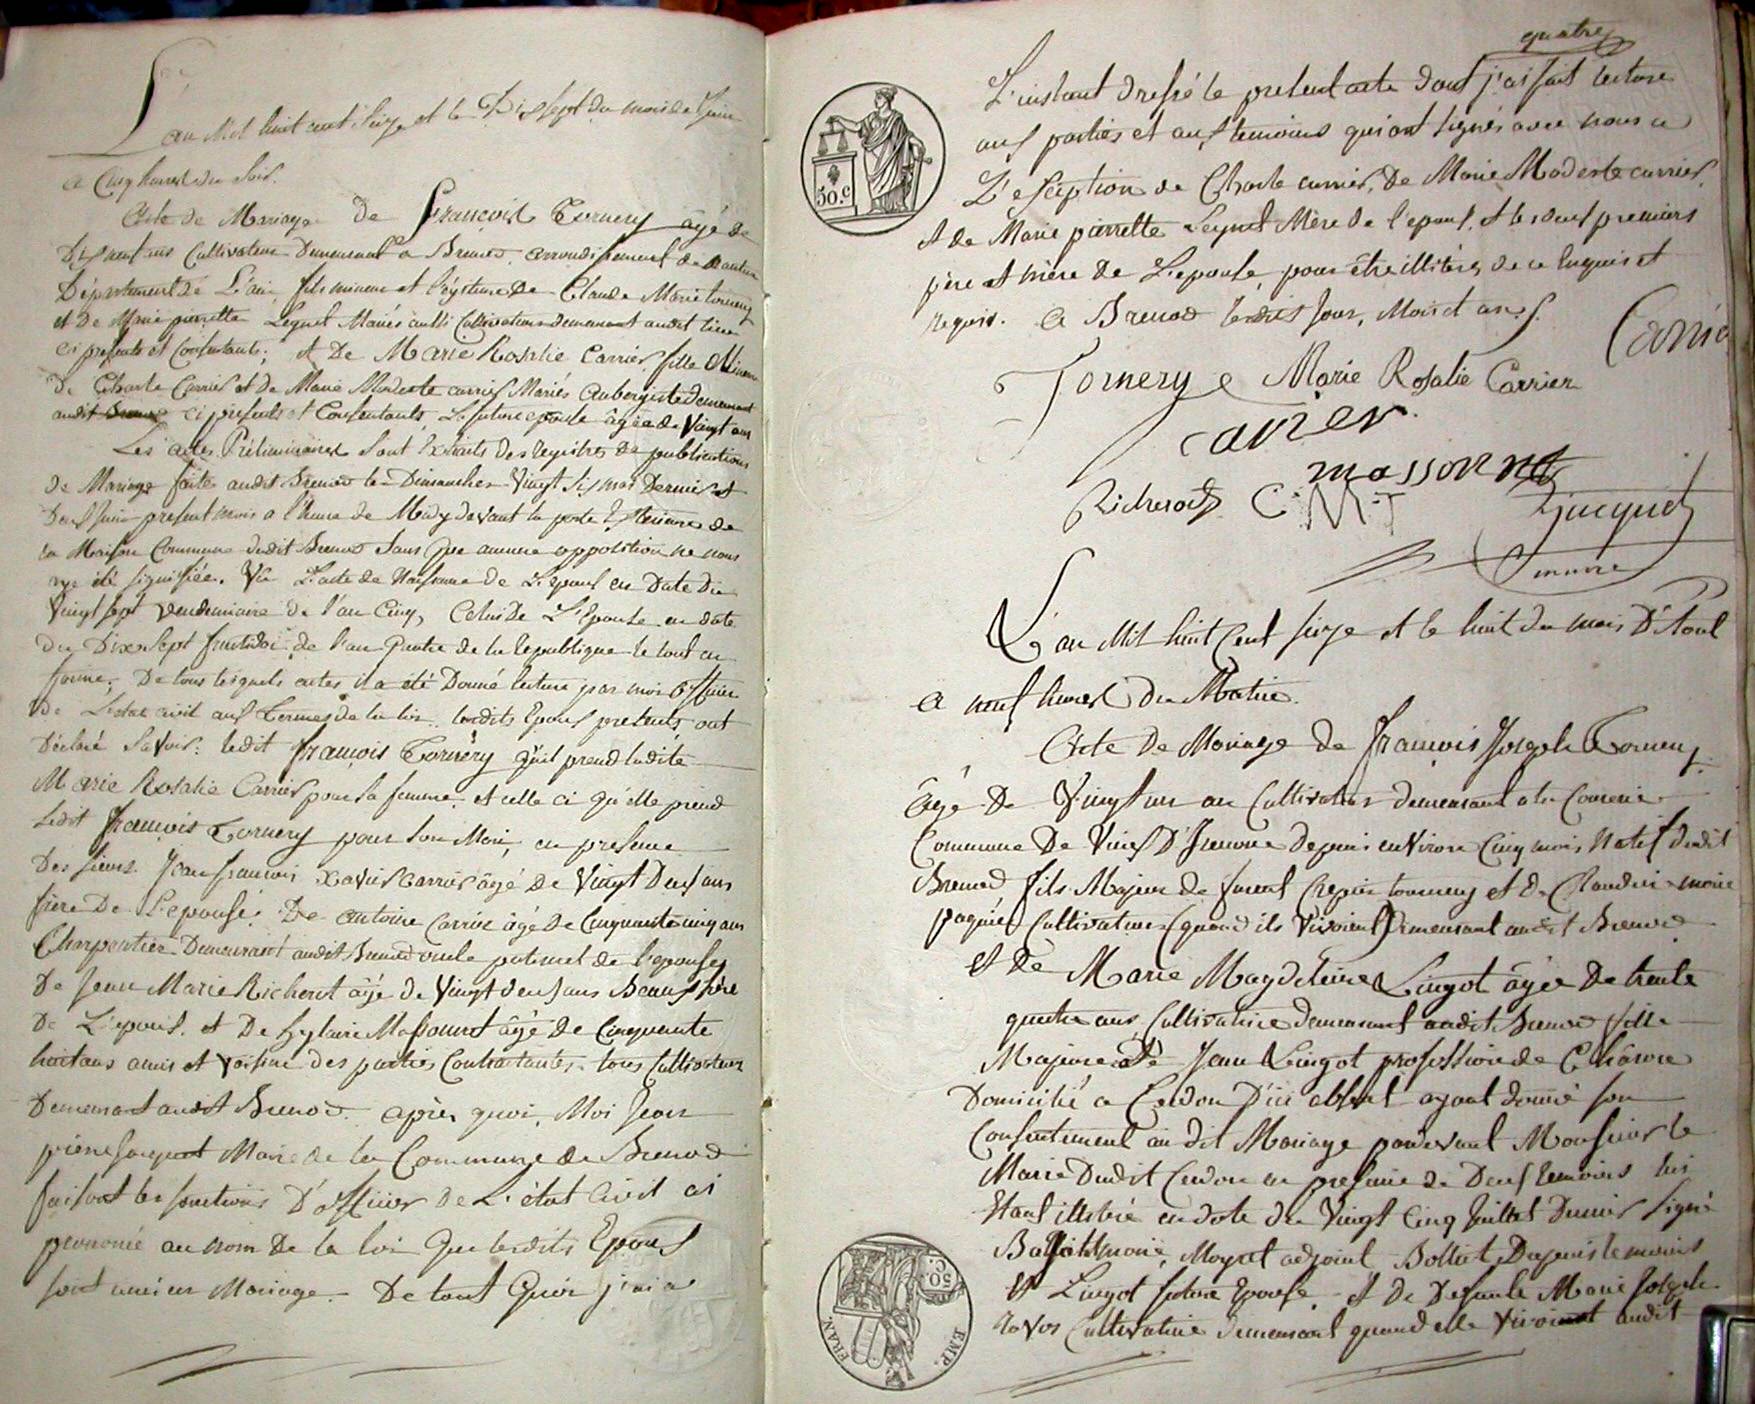 L'an Mil huit cent Seize et le Dix Sept du mois de Juin
a Cinq heures du Soir.
Acte de Mariage de François Tornery âgé de
Dix neuf ans Cultivateur Demeurant a Brenod, arrondissement de Nantua
Département de L'ain, fils mineur et légitime De Claude Marie tornery
et De Marie pierrette Seguet Mariés aussi Cultivateurs demeurant audit lieu
ci présents et Consentants; et De Marie Rosalie Carrier, fille Mineure
De Charle Carrier et de Marie Modeste carrier Mariés Aubergiste demeurant
audit Brenod ci présents et Consentants, La future epouse âgée de Vingt ans
Les actes Préliminaires Sont Extraits des registres de publications
de Mariage faites audit Brenod les Dimanches Vingt Six mai Dernier et
Deux Juin present mois a l'heure de Midy devant la porte Exterieure de
la Maison Commune dudit Brenod Sans que aucune opposition ne nous
aye été signifiée. Vu L'acte de Naissance de L'epoux en Date Du
Vingt sept vendemiaire de l'an Cinq, Celui De L'Epouse en date
du Dix Sept fructidor de l'an Quatre de la republique le tout en
forme; De tous lesquels actes il a été Donné lecture par moi Officier
de L'etat civil aux Termes de la loi. lesdits Epoux presents ont
Déclaré Savoir: ledit François Tornery qu'il prend ladite
Marie Rosalie Carrier pour sa femme, et celle ci qu'elle prend
Ledit François Tornery pour Son Mari, en presence
Des Sieurs Jean francois Xavier Carrier âgé De Vingt Deux ans
frère De L'epouse; De antoine Carrier âgé De Cinquante cinq ans
Charpentier Demeurant audit Brenod oncle paternel de l'epouse,
De Jean Marie Richerot âgé de Vingt deux ans Beaux frère
De L'epoux, et De hylaire Massonnet âgé De Cinquante
huit ans amis et Voisins des parties Contractantes. tous Cultivateurs
Demeurant audit Brenod. après quoi, Moi Jean
pierre Jacquet Maire de la Commune de Brenod
faisant les fonctions D'officier de L'état Civil ai
prononcé au nom De la loi Que lesdits Epoux
sont unis en Mariage. De tout Quoi j'ai a
quatre
L'instant dressé le present acte dont j'ai fait lecture
aux parties et aux temoins qui ont signés avec nous a
L'exception de Charle carrier, De Marie Modeste carrier,
et de Marie pierrette Seguet Mère de l'epoux, et les deux premiers
père et mère de L'epouse, pour être illitérés de ce Enquis et
requis. A Brenod lesdits Jour, Mois et ans.
Carrier
Tornery Marie Rosalie Carrier
carier
massonnet
Richerot C. M. T Jacquet
maire
50.c
L'an Mil huit Cent Seize et le huit du mois D'Aout
a neuf heures Du Matin.
Acte De Mariage de François Joseph Tornery
âgé De Vingt un an Cultivateur demeurant a la
Commune De Vieux D'Izenave depuis environ Cinq mois, Natif dudit
Brenod fils Majeur de furent Crepin tornery et de Claudine marie
paquier Cultivateurs (quand ils Vivoient) Demeurant audit Brenod
et De Marie Magdeleine Lingot âgée De trente
quatre ans, Cultivatrice demeurant audit Brenod fille
Majeure De Jean Lingot profession de
Domicilié a Cerdon D'ici absent ayant donné son
Consentement au dit Mariage pardevant Monsieur le
Maire Dudit Cerdon en presence de Deux temoins lui
Etant illitéré en date du Vingt Cinq Juillet Dernier Signé
maire, adjoint
et Lingot future Epouse, et De Defunte Marie Joseph
Cultivatrice demeurant quand elle Vivoient audit
50.C.
EMP.
FRAN.